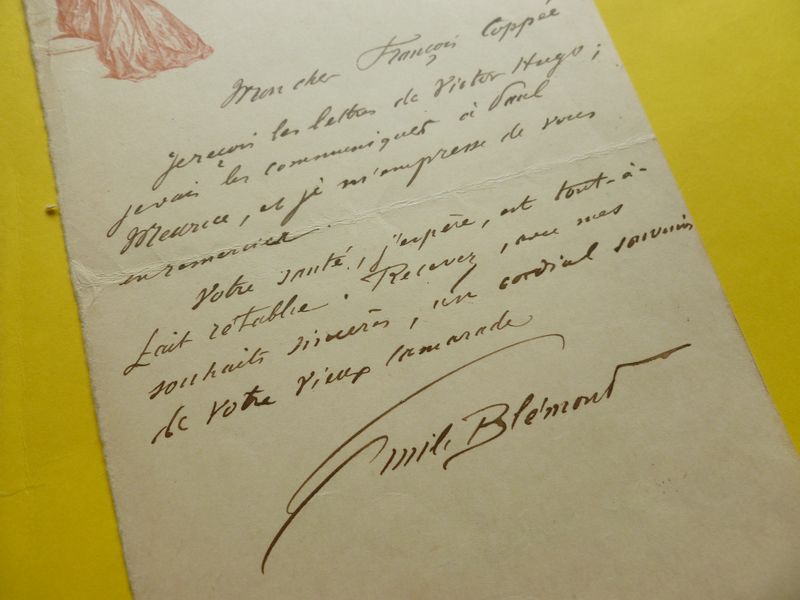 Mon cher François Coppée
Je reçois les lettres de Victor Hugo ;
je vais les communiquer à Paul
Meurice, et je m'empresse de vous
en remercier.
Votre santé, j'espère, est tout-à-
fait rétablie. Recevez, avec mes
souhaits sincères, un cordial souvenir
de votre vieux camarade
Emile Blémont